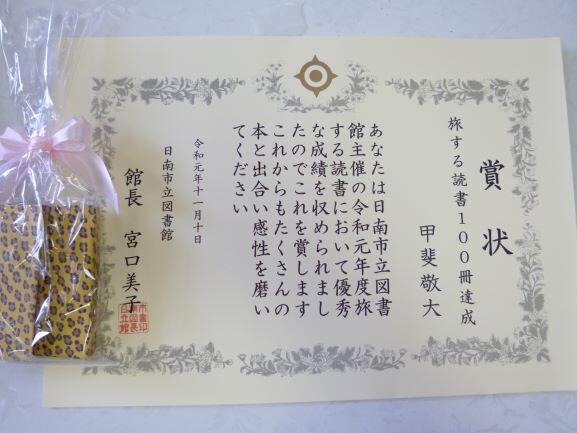 賞状
旅する読書100冊達成
甲斐敬大
あなたは日南市立図書
館主催の令和元年度旅
する読書において優秀
な成績を収められまし
たのでこれを賞します
これからもたくさんの
本と出合い感性を磨い
てください
令和元年十一月十日
日南市立図書館
館長 宮口美子